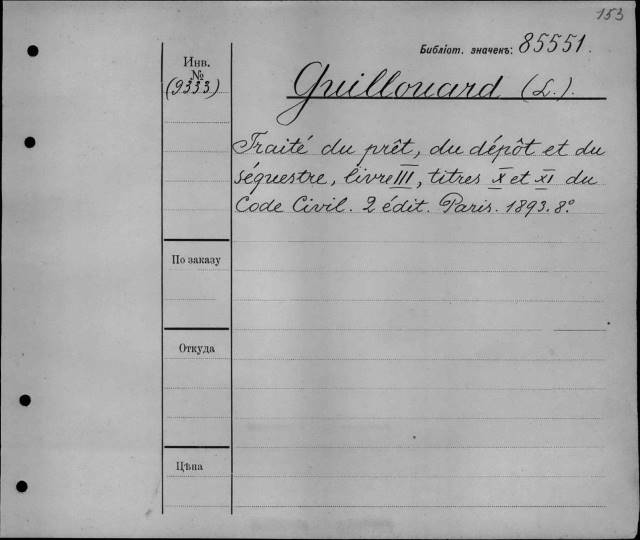 153
Библіот. значекъ: 85551.
Инв.
№
(9333)
Guillouard (L.).
Traité du prêt, du dépôt et du
séquestre, livre III, titres X et XI du
Code Civil. 2 édit. Paris. 1893. 8º
По заказу
Откуда
Цѣна